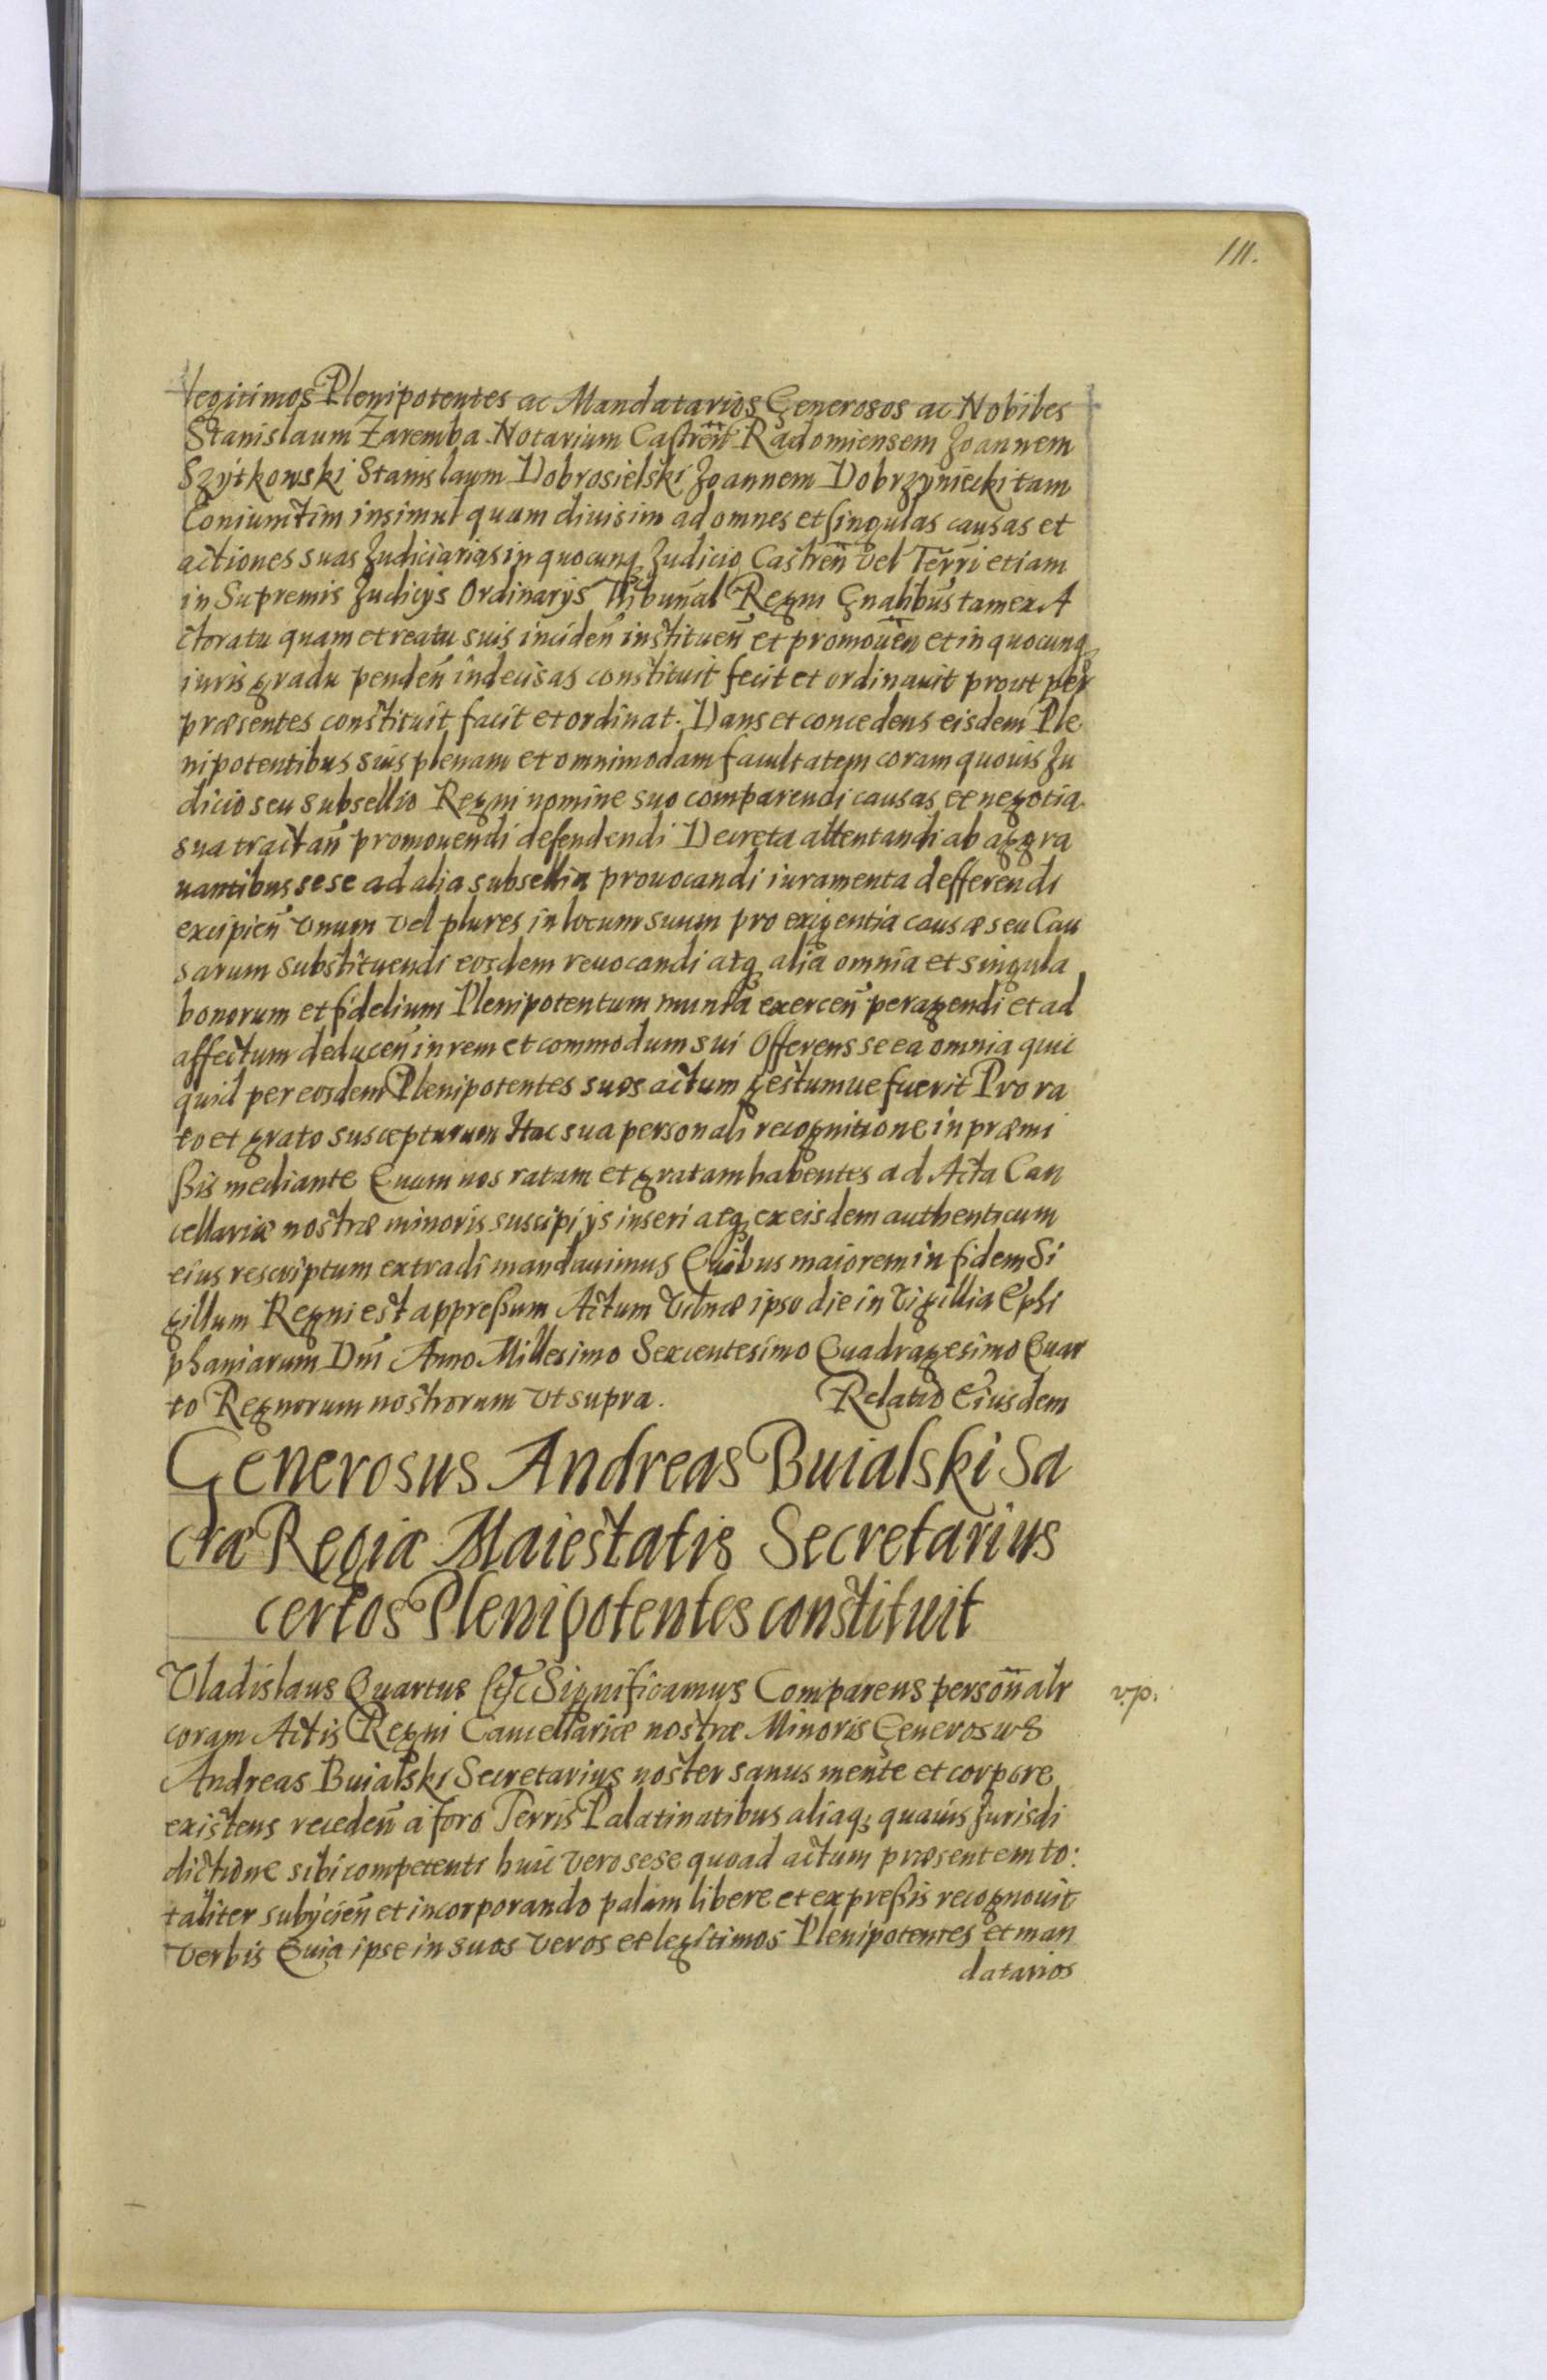 111.
legitimos Plenipotentes ac Mandatarios Generosos ac Nobiles
Stanislaum Zaremba Notarium Castren̄ Radomiensem Joannem
Szytkowski Stanislaum Dobrosielski Joannem Dobrzyniecki tam
Coniunctim insimul quam diuisim ad omnes et singulas causas et
actiones suas Judiciarias in quocunq Judicio Castren̄ vel Terri etiam
in Supremis Judicijs Ordinarijs Tribunal Regni Gnalibus tam ex A
ctoratu quam et reatu suis inciden̄ instituen̄ et promouen̄ et in quocunq
iuris gradu penden̄ indecisas constituit fecit et ordinauit prout per
præsentes constituit facit et ordinat. Dans et concedens eisdem Ple
nipotentibus suis plenam et omnimodam facultatem coram quouis Ju
dicio seu subsellio Regni nomine suo comparendi causas et negotia
sua tractan̄ promouendi defendendi Decreta attentandi ab aggra
uantibus sese ad alia subsellia prouocandi iuramenta defferendi
excipien̄ vnum vel plures in locum suum pro exigentia causæ seu Cau
sarum substituendi eosdem reuocandi atq alia omnia et singula
bonorum et fidelium Plenipotentum munia exercen̄ peragendi et ad
affectum deducen̄ in rem et commodum sui Offerens se ea omnia quic
quid per eosdem Plenipotentes suos actum gestumue fuerit Pro ra
to et grato suscepturum Hac sua personali recognitione in præmi
ßis mediante Quam nos ratam et gratam habentes ad Acta Can
cellariæ nostræ minoris suscipi ijs inseri atq ex eisdem authenticum
eius rescriptum extradi mandauimus Quibus maiorem in fidem Si
gillum Regni est appreßum Actum Vilnæ ipso die in Vigillia Ephi
phaniarum Dni Anno Millesimo Sexcentesimo Quadragesimo Quar
to Regnorum nostrorum vt supra. Relatio Eiusdem
Generosus Andreas Buialski Sa
cræ Regiæ Maiestatis Secretarius
certos Plenipotentes constituit
Vladislaus Quartus &c Significamus Comparens person̄alr
v.p.
coram Actis Regni Cancellariæ nostræ Minoris Generosus
Andreas Buialski Secretarius noster sanus mente et corpore
existens receden̄ a foro Terris Palatinatibus aliaq; quauis Jurisdi
dictione sibi competenti huic vero sese quoad actum præsentem to:
taliter subijcien̄ et incorporando palam libere et expreßis recognouit
verbis Quia ipse in suos veros et legitimos Plenipotentes et man
datarios